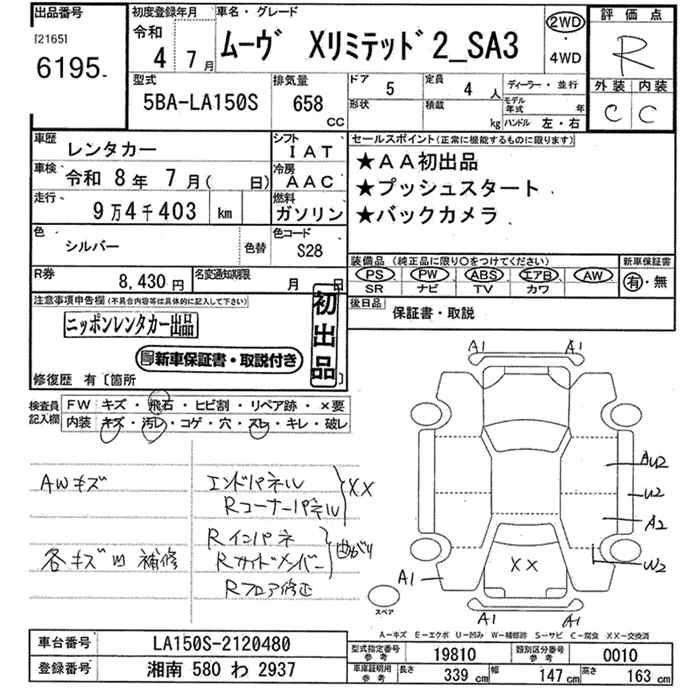 出品番号
[2165]
6195
初度登録年月
令和
4 年 7 月
車名・グレード
ムーヴ Xリミテッド2_SA3
2WD
・
4WD
評価点
R
外装 内装
C C
型式
5BA-LA150S
排気量
658
CC
ドア
5
形状
定員
4 人
積載
kg
ディーラー・並行
モデル年式 年
ハンドル 左・右
車歴
レンタカー
シフト
IAT
車検
令和 8 年 7 月( 日)
冷房
AAC
走行
9万4千403 km
燃料
ガソリン
色
シルバー
色替
色コード
S28
R券
8,430 円
名変通知期限
月 日
セールスポイント(正常に機能するものに限ります)
★AA初出品
★プッシュスタート
★バックカメラ
装備品(純正品に限り○をつけてください)
新車保証書
PS PW ABS エアB AW
SR ナビ TV カワ
有・無
後日品
保証書・取説
注意事項申告欄(不具合内容等は具体的に記入して下さい)
ニッポンレンタカー出品
新車保証書・取説付き
初出品
修復歴 有〔箇所
検査員記入欄
FW キズ・飛石・ヒビ割・リペア跡・×要
内装 キズ・汚レ・コゲ・穴・スレ・キレ・破レ
AWキズ
各キズ凹補修
エンドパネル
Rコーナーパネル
XX
Rインパネ
Rサイドメンバー
曲がり
Rフロア修正
A1 A1
AU2
U2
A2
W2
XX
A1
A1 A1
スペア
A-キズ E-エクボ U-凹み W-補修跡 S-サビ C-腐食 XX-交換済
車台番号
LA150S-2120480
登録番号
湘南 580 わ 2937
型式指定番号
参考
19810
類別区分番号
参考
0010
車庫証明用
参考
長さ
339 cm
幅
147 cm
高さ
163 cm